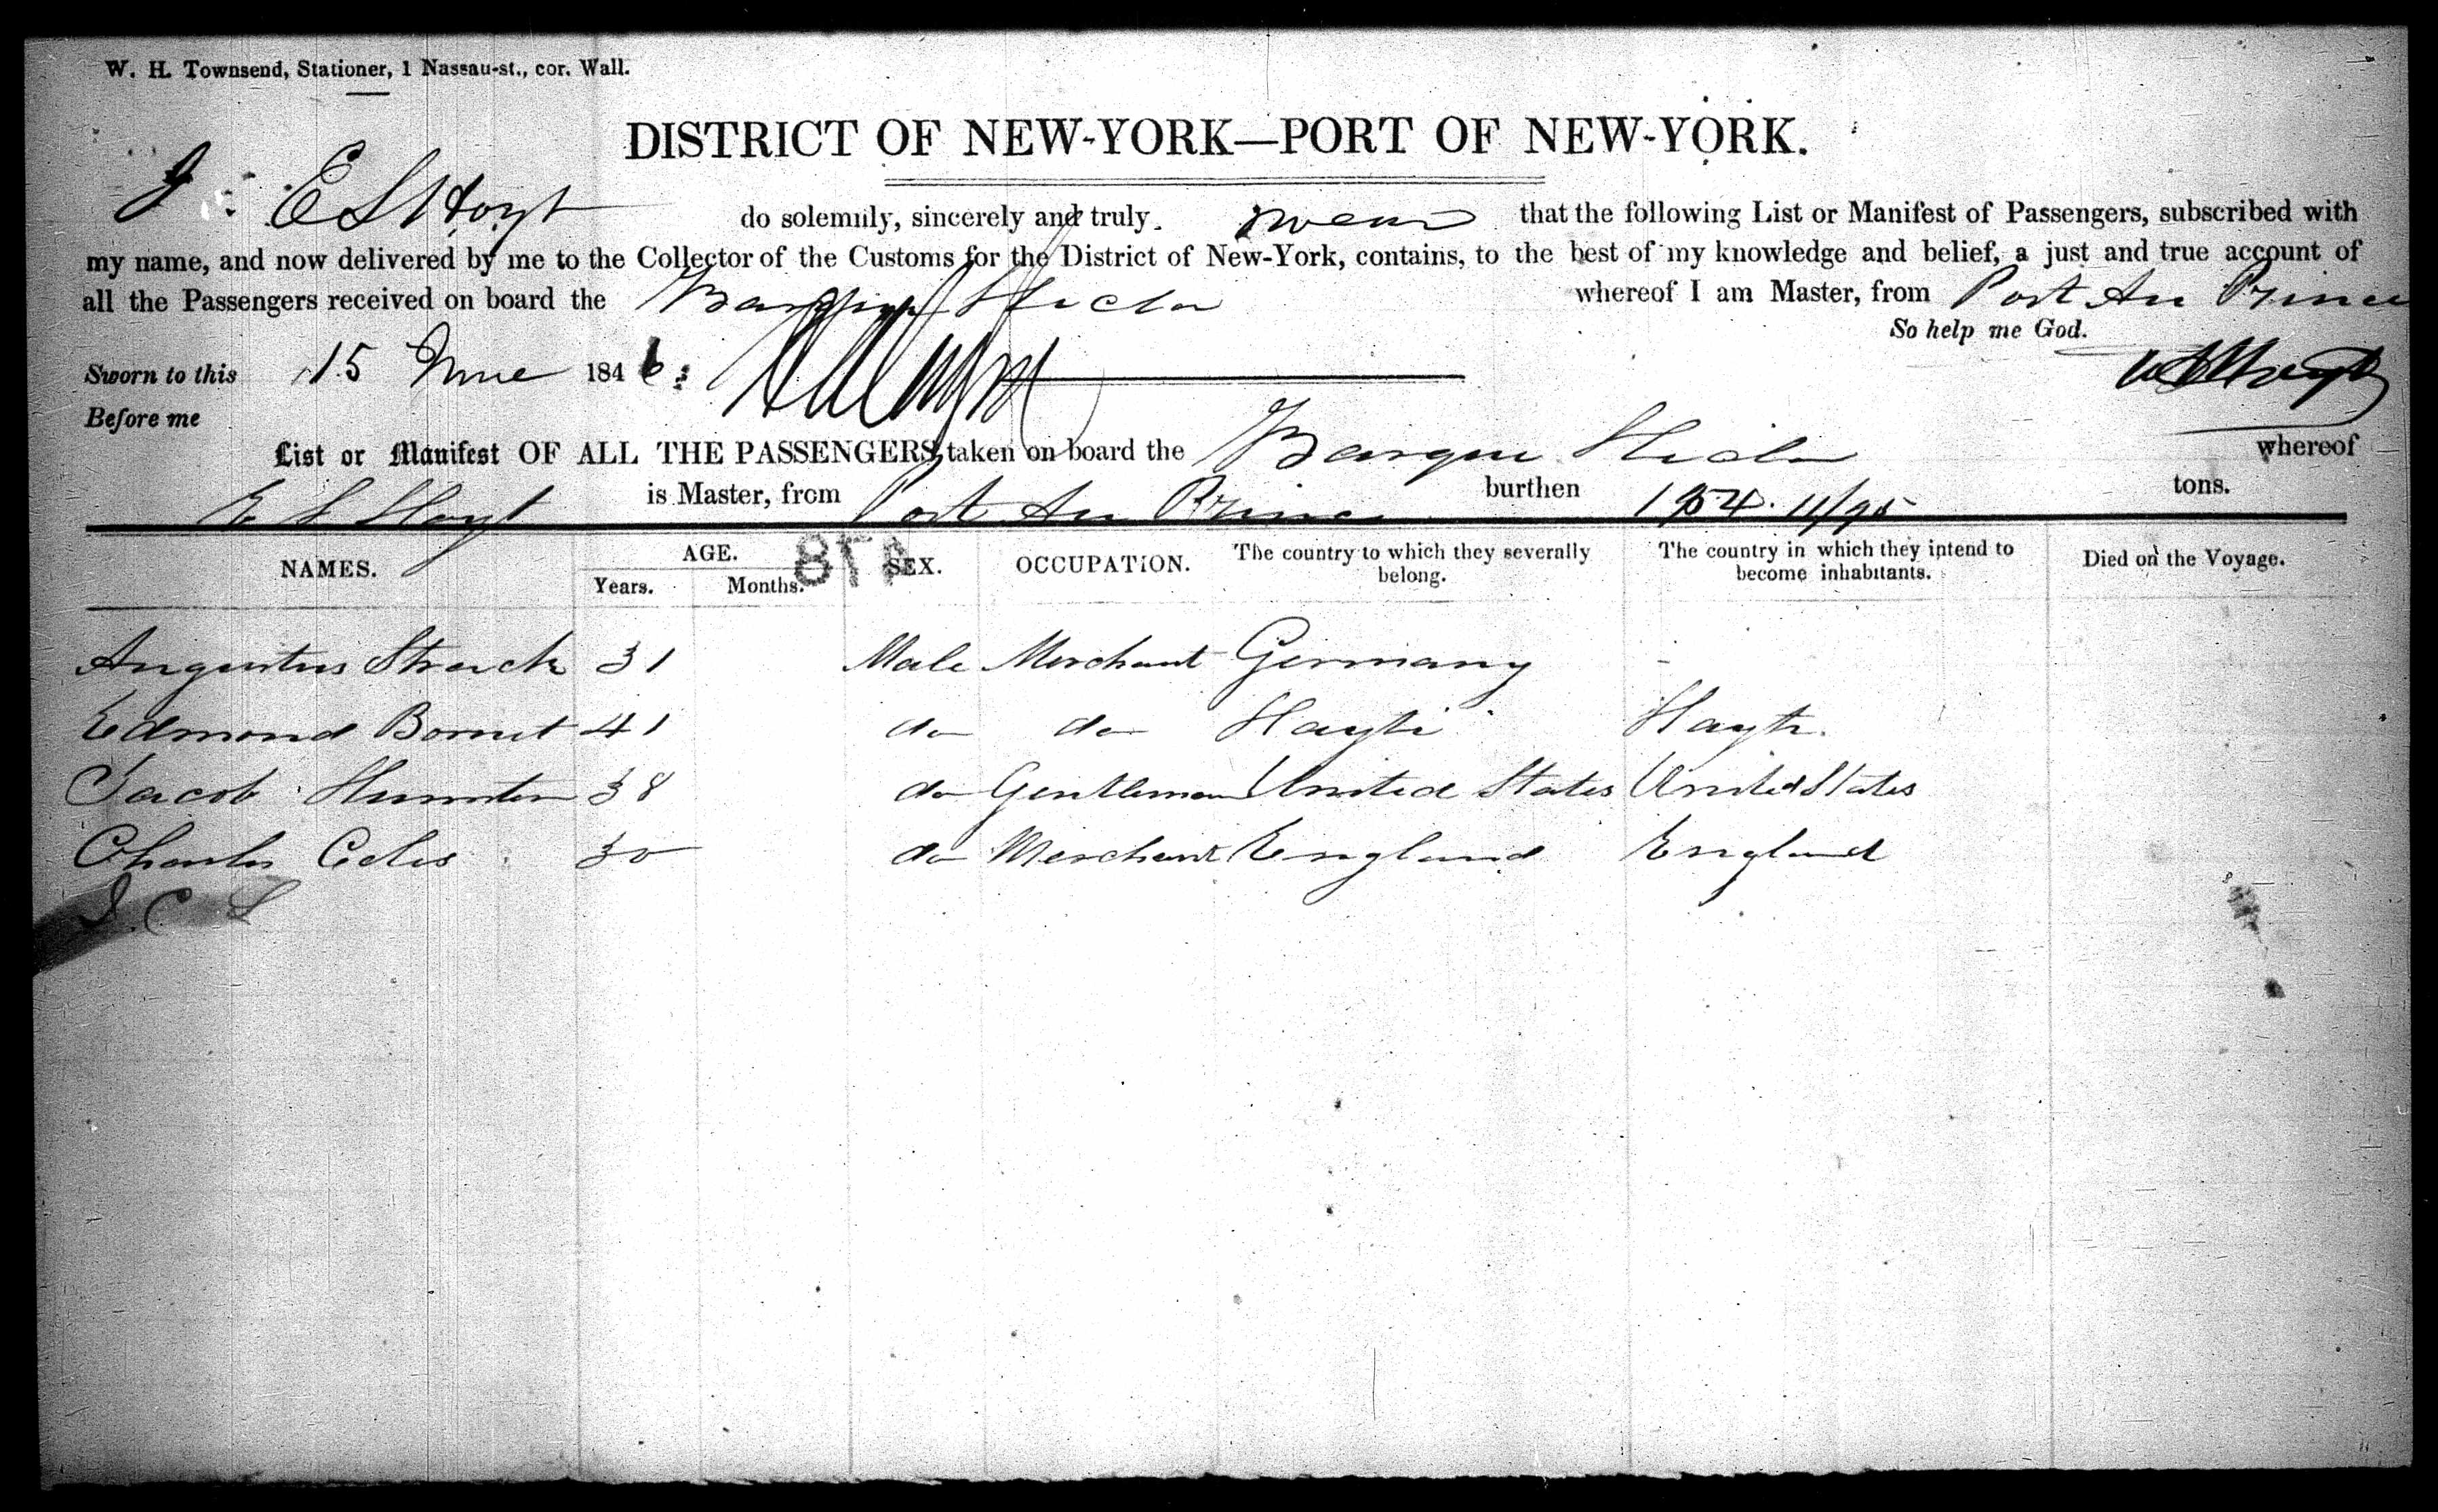 W. H. Townsend, Stationer, 1 Nassau-st., cor. Wall.
DISTRICT OF NEW-YORK—PORT OF NEW-YORK.
I E S Hoyt do solemnly, sincerely and truly swear that the following List or Manifest of Passengers, subscribed with
my name, and now delivered by me to the Collector of the Customs for the District of New-York, contains, to the best of my knowledge and belief, a just and true account of
all the Passengers received on board the Barque Hecla whereof I am Master, from Port Au Prince
So help me God.
Sworn to this 15 June 1846 E S Hoyt
Before me
List or Manifest OF ALL THE PASSENGERS taken on board the Barque Hecla whereof
E S Hoyt is Master, from Port Au Prince burthen 11/95 tons.
NAMES. AGE. SEX. OCCUPATION. The country to which they severally belong. The country in which they intend to become inhabitants. Died on the Voyage.
Years. Months.
Augustus Strack 31 Male Merchant Germany -
Edmond Bornet 41 do do Hayti Hayti.
Jacob Hunter 38 do Gentleman United States United States
Charles 30 do Merchant England England